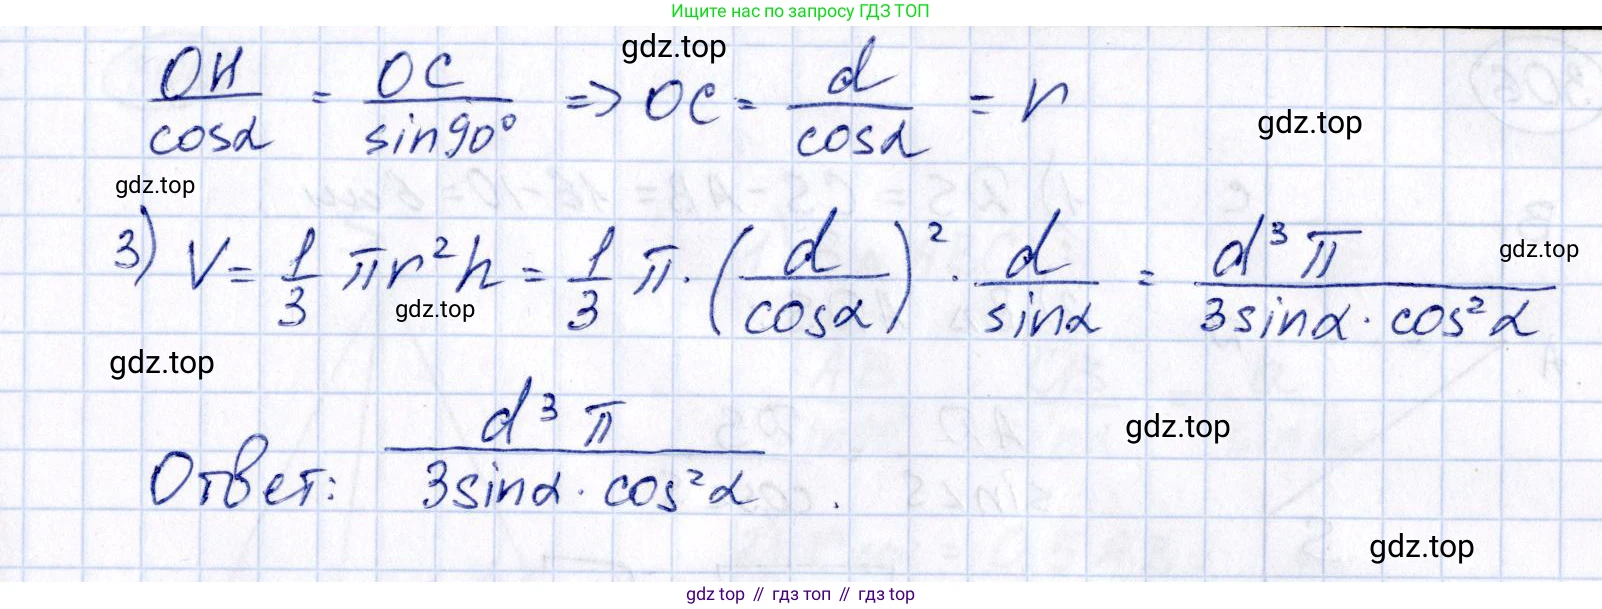 Ищите нас по запросу ГДЗ ТОП
gdz.top
OH/cosα = OC/sin90° => OC = d/cosα = r
gdz.top
gdz.top
3) V = 1/3 πr²h = 1/3 π · (d/cosα)² · d/sinα = d³π/(3sinα · cos²α)
gdz.top
gdz.top
gdz.top
Ответ: d³π/(3sinα · cos²α).
gdz.top
gdz.top
gdz.top // гдз топ // гдз.top